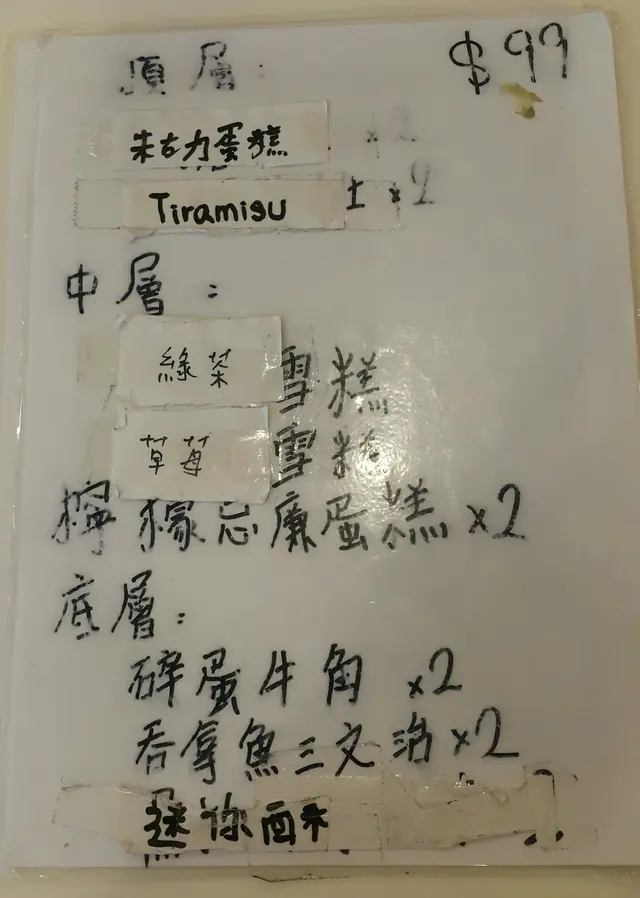 $99
頂層:
朱古力蛋糕 x2
Tiramisu 士 x2
中層:
綠茶雪糕
草莓雪糕
檸檬忌廉蛋糕 x2
底層:
碎蛋牛角 x2
吞拿魚三文治 x2
迷你